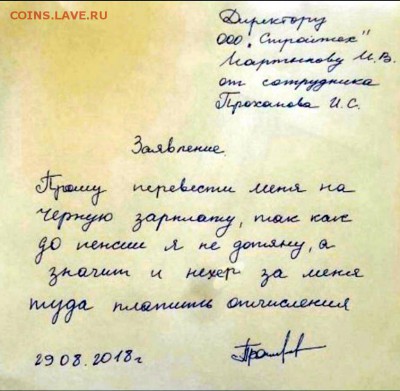 COINS.LAVE.RU
Директору
ООО „Стройтех"
Мартынову И.В.
от сотрудника
Проханова И.С.
Заявление.
Прошу перевести меня на
черную зарплату, так как
до пенсии я не дотяну, а
значит и нехер за меня
туда платить отчисления
29.08.2018г